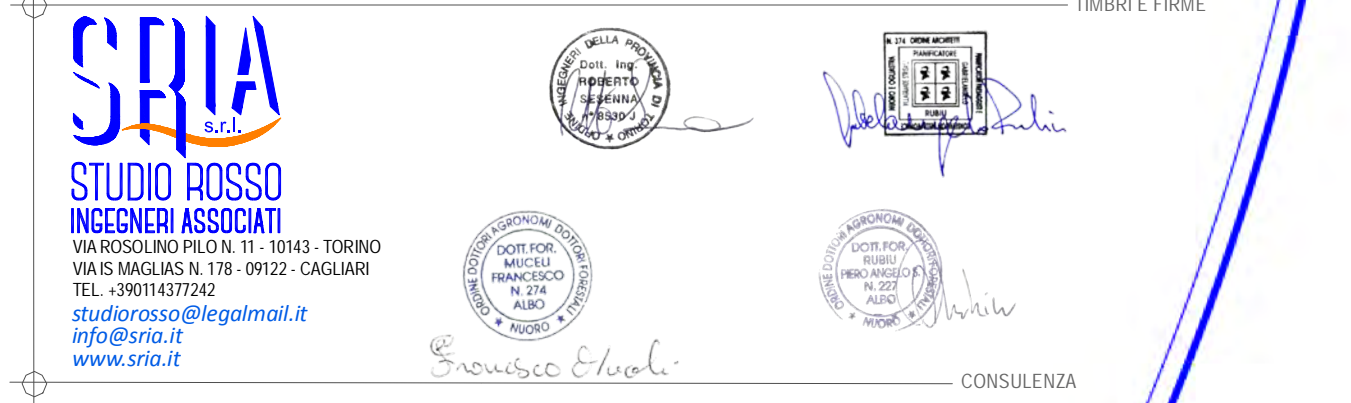 TIMBRI E FIRME
SRIA
s.r.l.
STUDIO ROSSO
INGEGNERI ASSOCIATI
VIA ROSOLINO PILO N. 11 - 10143 - TORINO
VIA IS MAGLIAS N. 178 - 09122 - CAGLIARI
TEL. +390114377242
studiorosso@legalmail.it
info@sria.it
www.sria.it
ORDINE INGEGNERI DELLA PROVINCIA DI TORINO
Dott. Ing.
ROBERTO
SESENNA
n° 8530 J
N. 274 ORDINE ARCHITETTI
PIANIFICATORE
RUBIU
ORDINE DOTTORI AGRONOMI DOTTORI FORESTALI
DOTT. FOR.
MUCELI
FRANCESCO
N. 274
ALBO
NUORO
Francesco Muceli
ORDINE DOTTORI AGRONOMI DOTTORI FORESTALI
DOTT. FOR.
RUBIU
PIERO ANGELO S.
N. 227
ALBO
NUORO
CONSULENZA